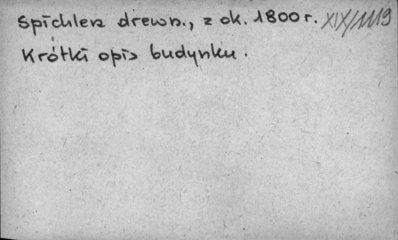 Spichlerz drewn., z ok. 1800 r. XIX/1119
Krótki opis budynku.